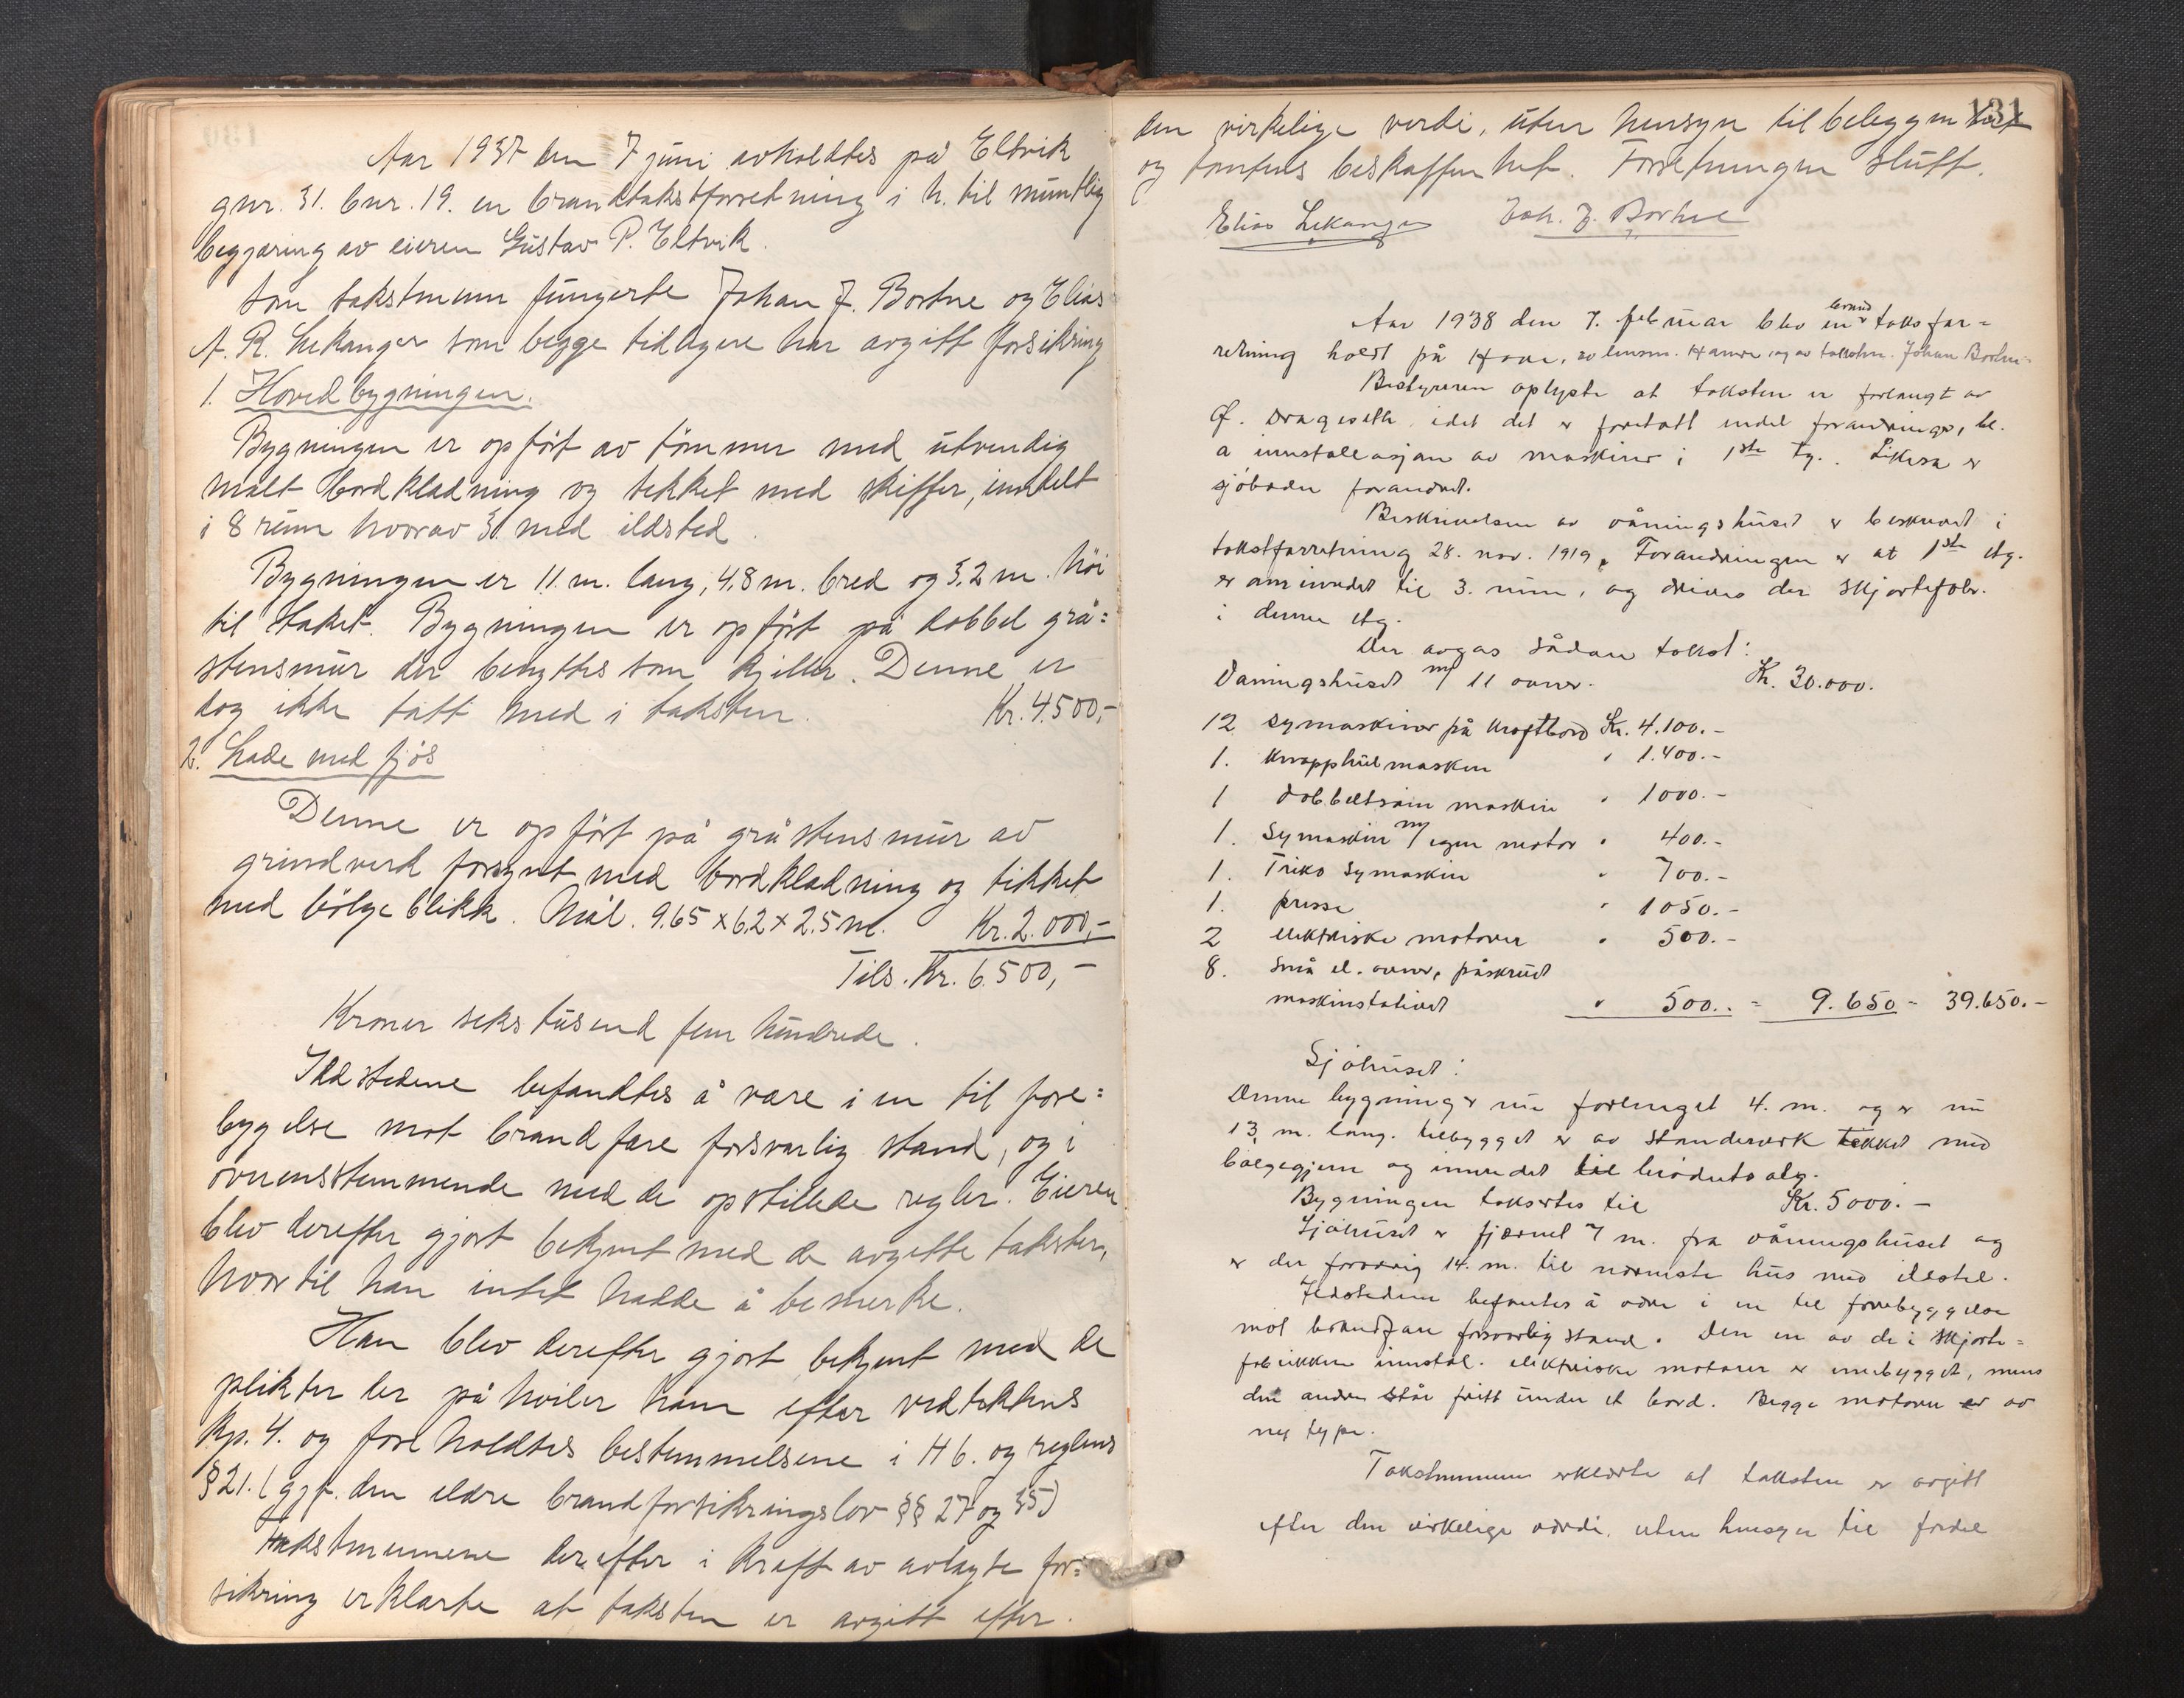 Aar 1937 den 7 juni avholdtes på Eltvik
gnr. 31. bnr. 19. en brandtakstforretning i h. til muntlig
begjæring av eieren Gustav P. Eltvik.
Som takstmenn fungerte Johan J. Bortne og Elias
A. R. Lekanger som begge tidligere har avgitt forsikring
1. Hovedbygningen.
Bygningen er opført av tømmer med utvendig
malt bordkledning og tekket med skiffer, inndelt
i 8 rum hvorav 3 med ildsted.
Bygningen er 11. m. lang, 4,8 m. bred og 5,2 m. høi
til taket. Bygningen er opført på dobbel grå=
stensmur der benyttes som kjeller. Denne er
dog ikke tatt med i taksten. Kr. 4500,-
2. Lade med fjøs
Denne er opført på gråstensmur av
grindverk forsynt med bordkledning og tekket
med bølgeblikk. Mål. 9.65 x 6.2 x 2.5 m. Kr. 2.000,-
Tils. Kr. 6.500,-
Kroner seks tusend fem hundrede.
Ildstedene befandtes å være i en til fore=
bygelse mot brandfare forsvarlig stand, og i
overensstemmende med de opstillede regler. Eieren
blev derefter gjort bekjent med de avgitte takster,
hvortil han intet hadde å bemerke.
Han blev derefter gjort bekjent med de
plikter der påhviler ham efter vedtektens
kp. 4. og foreholdtes bestemmelsene i H 6. og reglens
§ 21. (gjf. den eldre brandforsikringslov §§ 27 og 35)
Takstmennene derefter i kraft av avlagte for=
sikring erklærte at taksten er avgitt efter
131
den virkelige verdi, uten hensyn til beliggenhet
og tomtens beskaffenhet. Forretningen slutt.
Elias Lekanger Joh. J. Bortne
Aar 1938 den 7. februar blev en brand takstfor=
retning holdt på Hove, av lensm. Hamre og av takstm. Johan Bortne.
Bestyreren oplyste at taksten er forlangt av
O. Drageseth, idet det er foretatt endel forandringer, bl.
a innstallasjon av maskiner i 1ste etg. Likesa er
sjøboden forandret.
Beskrivelsen av våningshuset er beskrevet i
takstforretning 28. nov. 1919. Forandringen er at 1ste etg.
er ominnredet til 3. rum, og drives der skjortefabr.
i denne etg.
Der avgas sådan takst:
Vaningshuset m/ 11 ovner. Kr. 30.000.
12 symaskiner på kraftbord Kr. 4.100.-
1. Knapphulmaskin " 1.400.-
1 dobbeltsøm maskin " 1000.-
1. Symaskin m/ egen motor " 400.-
1. Triko symaskin " 700.-
1. presse " 1050.-
2 elektriske motorer " 500.-
8. små el. ovner, påskrudt
maskinstativet " 500.. = 9.650 - 39.650.-
Sjøhuset:
Denne bygning er nu forlenget 4. m. og er nu
13 m. lang. tilbygget er av standerverk tekket med
bølgegjern og innredet til brødutsalg.
Bygningen takstes til Kr. 5000.-
Sjøhuset er fjernet 7 m. fra våningshuset og
er der forøvrig 14. m. til nærmeste hus med ildsted.
Ildstedene befantes å være i en til forebyggelse
mot brandfare forsvarlig stand. Den en av de i skjorte=
fabrikken innstal. elektriske motorer er innebygget, mens
den andre står fritt under et bord. Begge motorer er av
ny type.
Takstmennene erklærte at taksten er avgitt
efter den virkelige værdi, uten hensyn til fordel